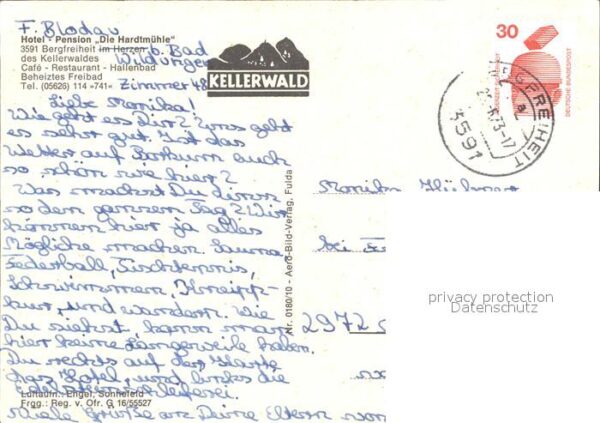 F. Blodau
Hotel - Pension „Die Hardtmühle"
3591 Bergfreiheit im Herzen b. Bad
des Kellerwaldes Wildungen
Café - Restaurant - Hallenbad
Beheiztes Freibad
Tel. (05626) 114 =741= Zimmer 48
KELLERWALD
30
DEUTSCHE BUNDESPOST
BERGFREIHEIT
3591
Liebe Monika!
Wie geht es Dir? Uns geht
es sehr gut. Ist das
Wetter auf Borkum auch
so schön wie hier?
Was machst Du denn
so den ganzen Tag? Wir
können hier ja alles
Mögliche machen. Sauna,
Federball, Tischtennis,
Schwimmen, Kneipp-
kur, und wandern. Wie
Du siehst, kann man
hier keine Langeweile haben.
Du rechts auf der Karte
das Hotel, und links die
Edelsteinschleiferei.
Luftaufn.: Engel, Sonnefeld
Frgg.: Reg. v. Ofr. G 16/5527
Viele Grüße an Deine Eltern von
Nr. 0180/10 - Aero-Bild-Verlag, Fulda
Monika
bei
2972
privacy protection
Datenschutz